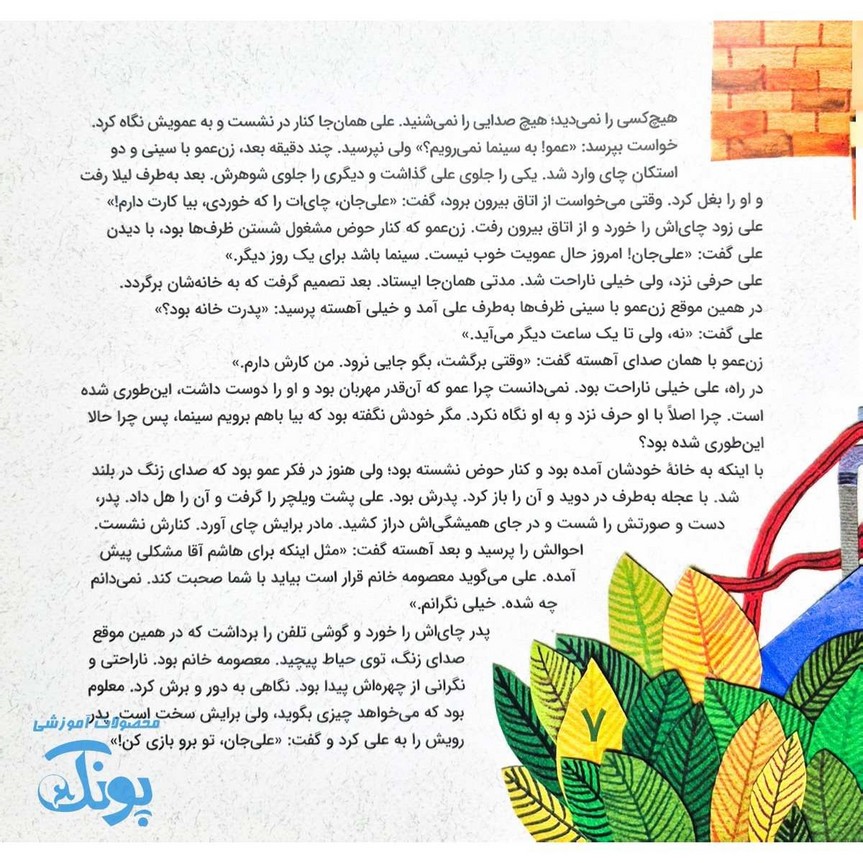 هیچ‌کسی را نمی‌دید؛ هیچ صدایی را نمی‌شنید. علی همان‌جا کنار در نشست و به عمویش نگاه کرد.
خواست بپرسد: «عمو! به سینما نمی‌رویم؟» ولی نپرسید. چند دقیقه بعد، زن‌عمو با سینی و دو
استکان چای وارد شد. یکی را جلوی علی گذاشت و دیگری را جلوی شوهرش. بعد به‌طرف لیلا رفت
و او را بغل کرد. وقتی می‌خواست از اتاق بیرون برود، گفت: «علی‌جان، چای‌ات را که خوردی، بیا کارت دارم!»
علی زود چای‌اش را خورد و از اتاق بیرون رفت. زن‌عمو که کنار حوض مشغول شستن ظرف‌ها بود، با دیدن
علی گفت: «علی‌جان! امروز حال عمویت خوب نیست. سینما باشد برای یک روز دیگر.»
علی حرفی نزد، ولی خیلی ناراحت شد. مدتی همان‌جا ایستاد. بعد تصمیم گرفت که به خانه‌شان برگردد.
در همین موقع زن‌عمو با سینی ظرف‌ها به‌طرف علی آمد و خیلی آهسته پرسید: «پدرت خانه بود؟»
علی گفت: «نه، ولی تا یک ساعت دیگر می‌آید.»
زن‌عمو با همان صدای آهسته گفت: «وقتی برگشت، بگو جایی نرود. من کارش دارم.»
در راه، علی خیلی ناراحت بود. نمی‌دانست چرا عمو که آن‌قدر مهربان بود و او را دوست داشت، این‌طوری شده
است. چرا اصلاً با او حرف نزد و به او نگاه نکرد. مگر خودش نگفته بود که بیا باهم برویم سینما، پس چرا حالا
این‌طوری شده بود؟
با اینکه به خانهٔ خودشان آمده بود و کنار حوض نشسته بود؛ ولی هنوز در فکر عمو بود که صدای زنگ در بلند
شد. با عجله به‌طرف در دوید و آن را باز کرد. پدرش بود. علی پشت ویلچر را گرفت و آن را هل داد. پدر،
دست و صورتش را شست و در جای همیشگی‌اش دراز کشید. مادر برایش چای آورد. کنارش نشست.
احوالش را پرسید و بعد آهسته گفت: «مثل اینکه برای هاشم آقا مشکلی پیش
آمده. علی می‌گوید معصومه خانم قرار است بیاید با شما صحبت کند. نمی‌دانم
چه شده. خیلی نگرانم.»
پدر چای‌اش را خورد و گوشی تلفن را برداشت که در همین موقع
صدای زنگ، توی حیاط پیچید. معصومه خانم بود. ناراحتی و
نگرانی از چهره‌اش پیدا بود. نگاهی به دور و برش کرد. معلوم
بود که می‌خواهد چیزی بگوید، ولی برایش سخت است. پدر
رویش را به علی کرد و گفت: «علی‌جان، تو برو بازی کن!»
۷
محصولات آموزشی
پونک